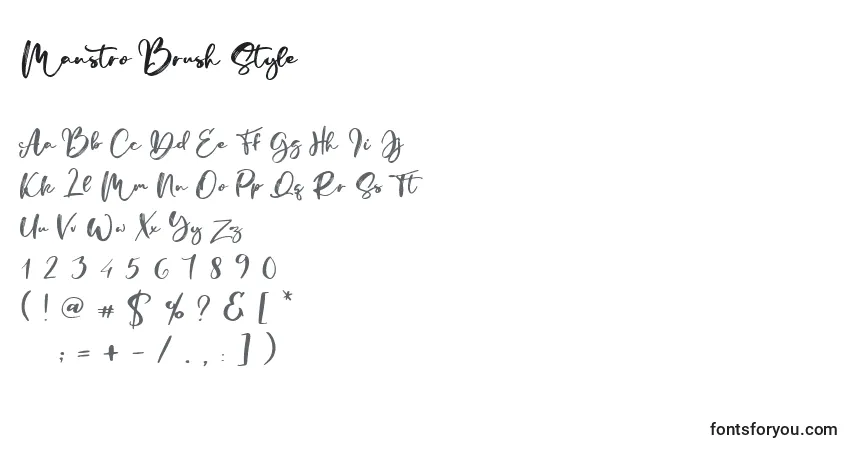 Manstro Brush Style
Aa Bb Cc Dd Ee Ff Gg Hh Ii Jj
Kk Ll Mm Nn Oo Pp Qq Rr Ss Tt
Uu Vv Ww Xx Yy Zz
1 2 3 4 5 6 7 8 9 0
( ! @ # $ % ? & [ *
; = + - / . , : ] )
fontsforyou.com